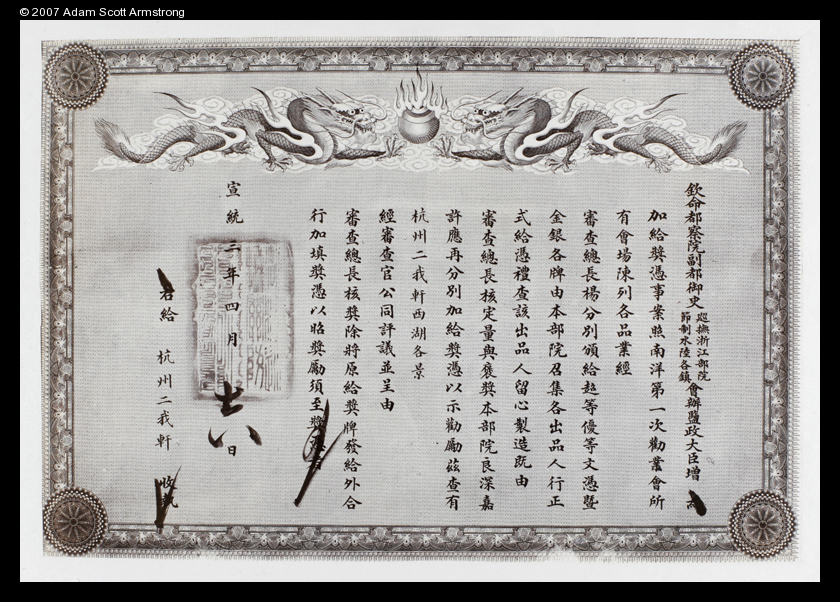 © 2007 Adam Scott Armstrong
欽命都察院副都御史巡撫浙江部院節制水陸各鎮會辦鹽政大臣增 為
加給獎憑事案照南洋第一次勸業會所
有會場陳列各品業經
審查總長楊分別頒給超等優等文憑暨
金銀各牌由本部院召集各出品人行正
式給憑禮查該出品人留心製造既由
審查總長核定量與褒獎本部院良深嘉
許應再分別加給獎憑以示勸勵茲查有
杭州二我軒西湖各景
經審查官公同評議並呈由
審查總長核獎除將原給獎牌發給外合
行加填獎憑以昭獎勵須至獎憑者
宣統三年四月十八日
右給 杭州二我軒 收執